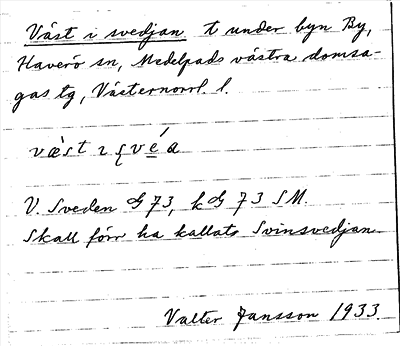 Väst i svedjan t under byn By,
Haverö sn, Medelpads västra domsa-
gas tg, Västernorrl. l.
væst ı
V. Sveden G 73, k G 73 SM.
Skall förr ha kallats Svinsvedjan
Valter Jansson 1933.